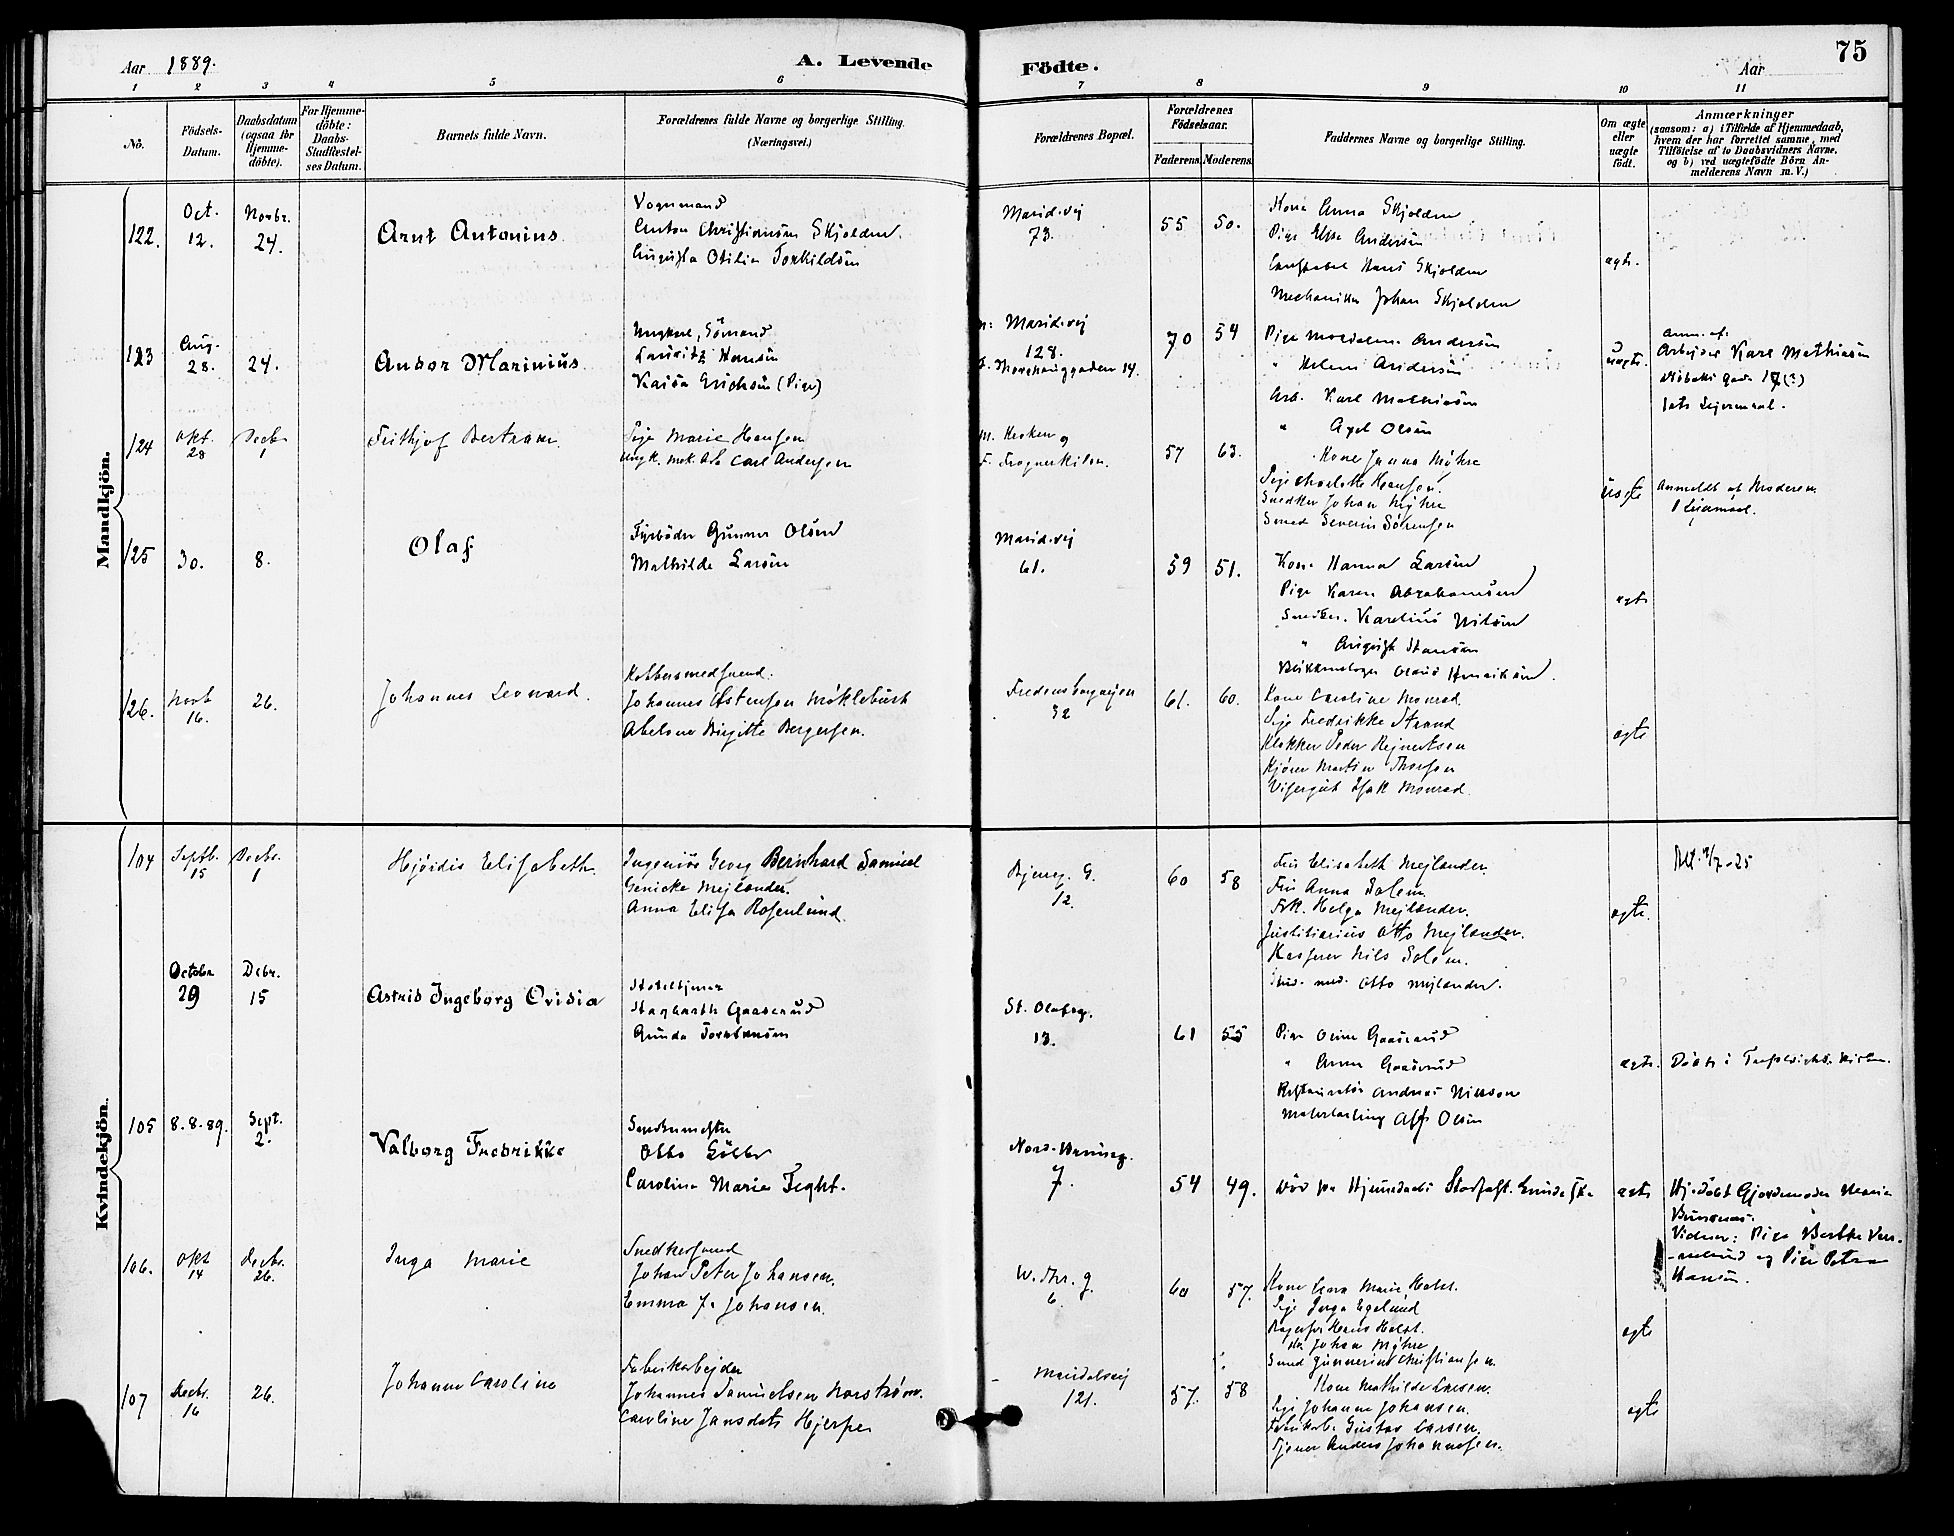 Aar 1889.
A. Levende
Födte.
Aar
75
1 2 3 4 5 6 7 8 9 10 11
No.
Födsels-
Datum.
Daabsdatum
(ogsaa för
Hjemme-
döbte).
For Hjemme-
döbte:
Daabs-
Stadfæstel-
ses Datum.
Barnets fulde Navn.
Forældrenes fulde Navne og borgerlige Stilling.
(Næringsvei.)
Forældrenes Bopæl.
Forældrenes
Födselsaar.
Faderens. Moderens.
Faddernes Navne og borgerlige Stilling.
Om ægte
eller
uægte
födt.
Anmærkninger
(saasom: a) i Tilfælde af Hjemmedaab,
hvem der har forrettet samme, med
Tilföielse af to Daabsvidners Navne,
og b) ved uægtefödte Börn An-
melderens Navn m. V.)
Mandkjön.
122.
Oct.
12.
Novbr.
24.
Arnt Antonius
Vognmand
Anton Christiansen Skjolden.
Augusta Otilia Torkildsen
Maridvej
73.
55 50.
Kone Anna Skjolden
Pige Elise Andersen
Constabel Hans Skjolden
Mechaniker Johan Skjolden
ægte.
123
Aug.
28.
24.
Andor Marinius
Ungkarl, Sömand
Lauritz Hansen
Kaisa Erichsen (Pige)
M: Maridvej
128.
70 54
Andersen
" Helene Andersen
Arb. Karl Mathisen
" Axel Olsen
uægte.
Anm. af.
Arbejder Karl Mathisen
124
Okt.
28
Decbr
1
Frithjof Bertram.
Pige Marie Hansen
Carl Andersen
M. Kroken og
F. Frognerkilen.
57 63.
Kone Janna Myhre
Pige Charlotte Hansen.
Snedker Johan Myhre
Smed Severin Sørensen
uægte
Anmeldt af Moderen.
1 Leiermaal.
125
30.
8.
Olaf
Fyrböder Gunnar Olsen
Mathilde Larsen
Maridvej
61.
59 51.
Kone Hanna Larsen
Pige Karen Abrahamsen
Snedker. Karelius Nilsen
" August Hansen
Olaus Henriksen.
ægte
126.
Novb
16.
26.
Johannes Leonard.
Kobbersmedsvend.
Johannes Østensen Møklebust
Abelone Birgitte Bergersen.
Fredensborgvejen
32
61. 60.
Kone Caroline Monrad.
Pige Fredrikke Strand
Klokker Peder Rejnertsen
Kjører Martin Thorsen
Visergut Isak Monrad.
ægte
Kvindekjön.
104
Septb.
15
Decbr.
1
Hjördis Elisabeth.
Ingeniør Georg Bernhard Samuel
Genicke Mejlænder.
Anna Elisa Rosenlund.
Bjerreg. G.
12.
60 58
Fru Elisabeth Mejlænder.
Fru Anna Solem.
Frk. Helga Mejlænder.
Justitiarius Otto Mejlænder.
Kasserer Nils Solem.
Stud. med. Otto Mejlænder.
ægte.
Octobr
29
Debr.
15
Astrid Ingeborg Ovidia
Hotelltjener
Hagharth Gaaserud
Gunda Torstensen
St. Olafsg.
13.
61 55
Pige Oline Gaaserud
" Anna Gaaserud
Restauratör Andreas Nielsen
Malerlærling Alf Olsen
ægte.
Döbt i Trefoldighds. Kirken.
105
8.8.89.
Sept.
2.
Valborg Fredrikke
Otto
Caroline Marie Feght.
7.
54 49.
ægte
Hj. döbt Gjordemoder Maria
Vidner: Pige Berthe
og Pige Petra
Hansen.
106.
Okt
14
Decbr.
26.
Inga Marie
Snedkersvend
Johan Peter Johansen.
Emma J. Johansen.
W. Thr. g.
6.
60 57.
Kone Lena Marie Holst.
Pige Inga Egelund
Hans Holst.
do Johan Myhre
Smed Gunnerius Christiansen
ægte
107
Decbr.
16
26.
Johanne Caroline
Fabrikarbejder
Johannes Samuelsen Norstrøm.
Caroline Jansdatr Hjerpe
Maridalsvej
121.
57. 58
Kone Mathilde Larsen.
Pige Johanne Johansen.
Fabrikarb. Gustav Larsen.
Tjener Anders Johannesen.
ægte